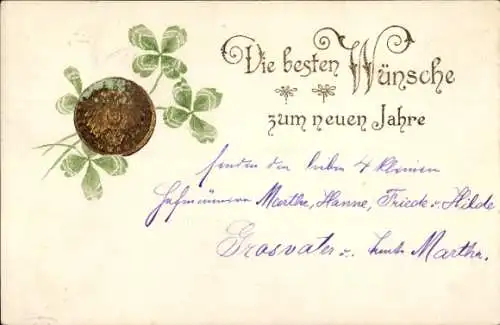 Die besten Wünsche
zum neuen Jahre
senden den lieben 4 kleinen
Marthe, Hanne, Friede u. Hilde
Grosvater u. Tante Marthe.